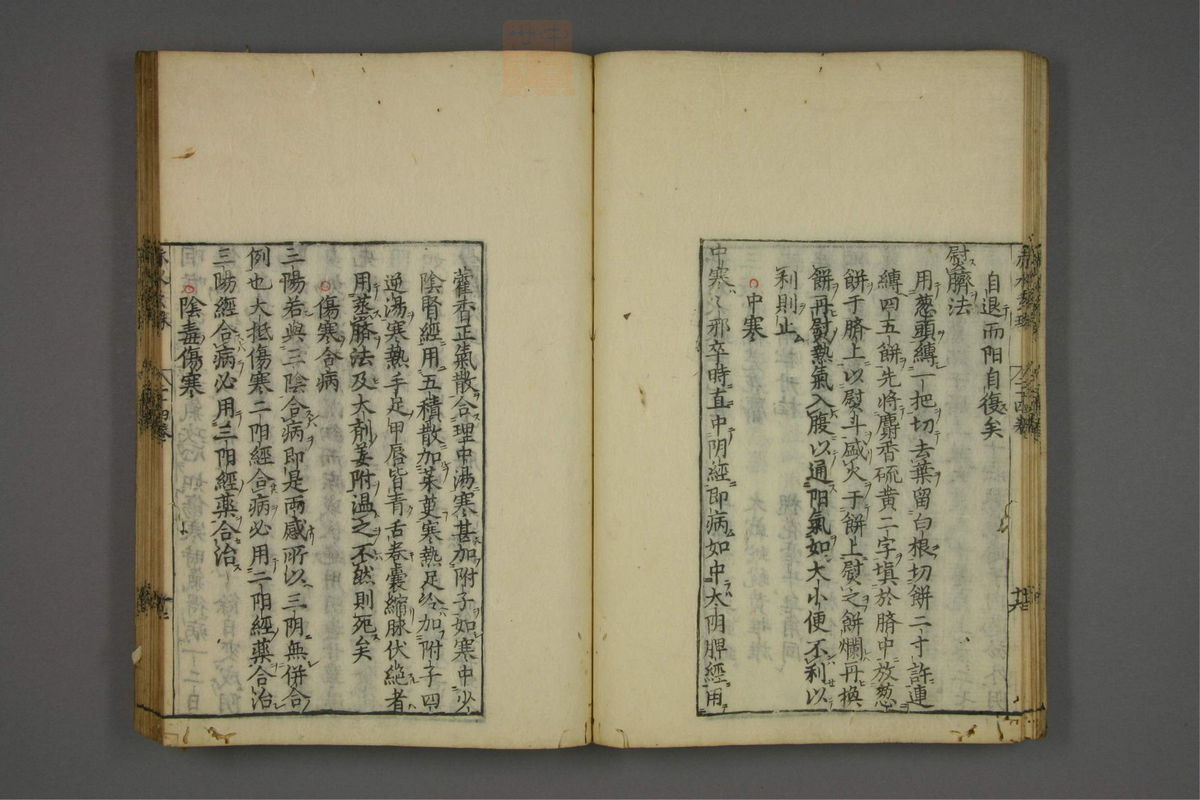 自退而阳自復矣
熨臍法
用葱頭縛一把切去葉留白根切餅二寸許連
縛四五餅先將麝香硫黄二字塡於臍中放葱
餅于臍上以熨斗盛火于餅上熨之餅爛再換
餅再熨熱氣入腹以通阳氣如大小便不利以
利則止
中寒
中寒寒邪卒時直中阴經即病如中太阴脾經用
藿香正氣散合理中湯寒甚加附子如寒中少
陰腎經用五積散加茱萸寒熱足冷加附子四
逆湯寒熱手足甲唇皆青舌卷囊縮脉伏絶者
用蒸臍法及大劑姜附温之不然則死矣
傷寒合病
三陽若與三陰合病即是兩感所以三阴無併合
例也大抵傷寒二阳經合病必用二阳經藥合治
三陽經合病必用三阳經藥合治
陰毒傷寒